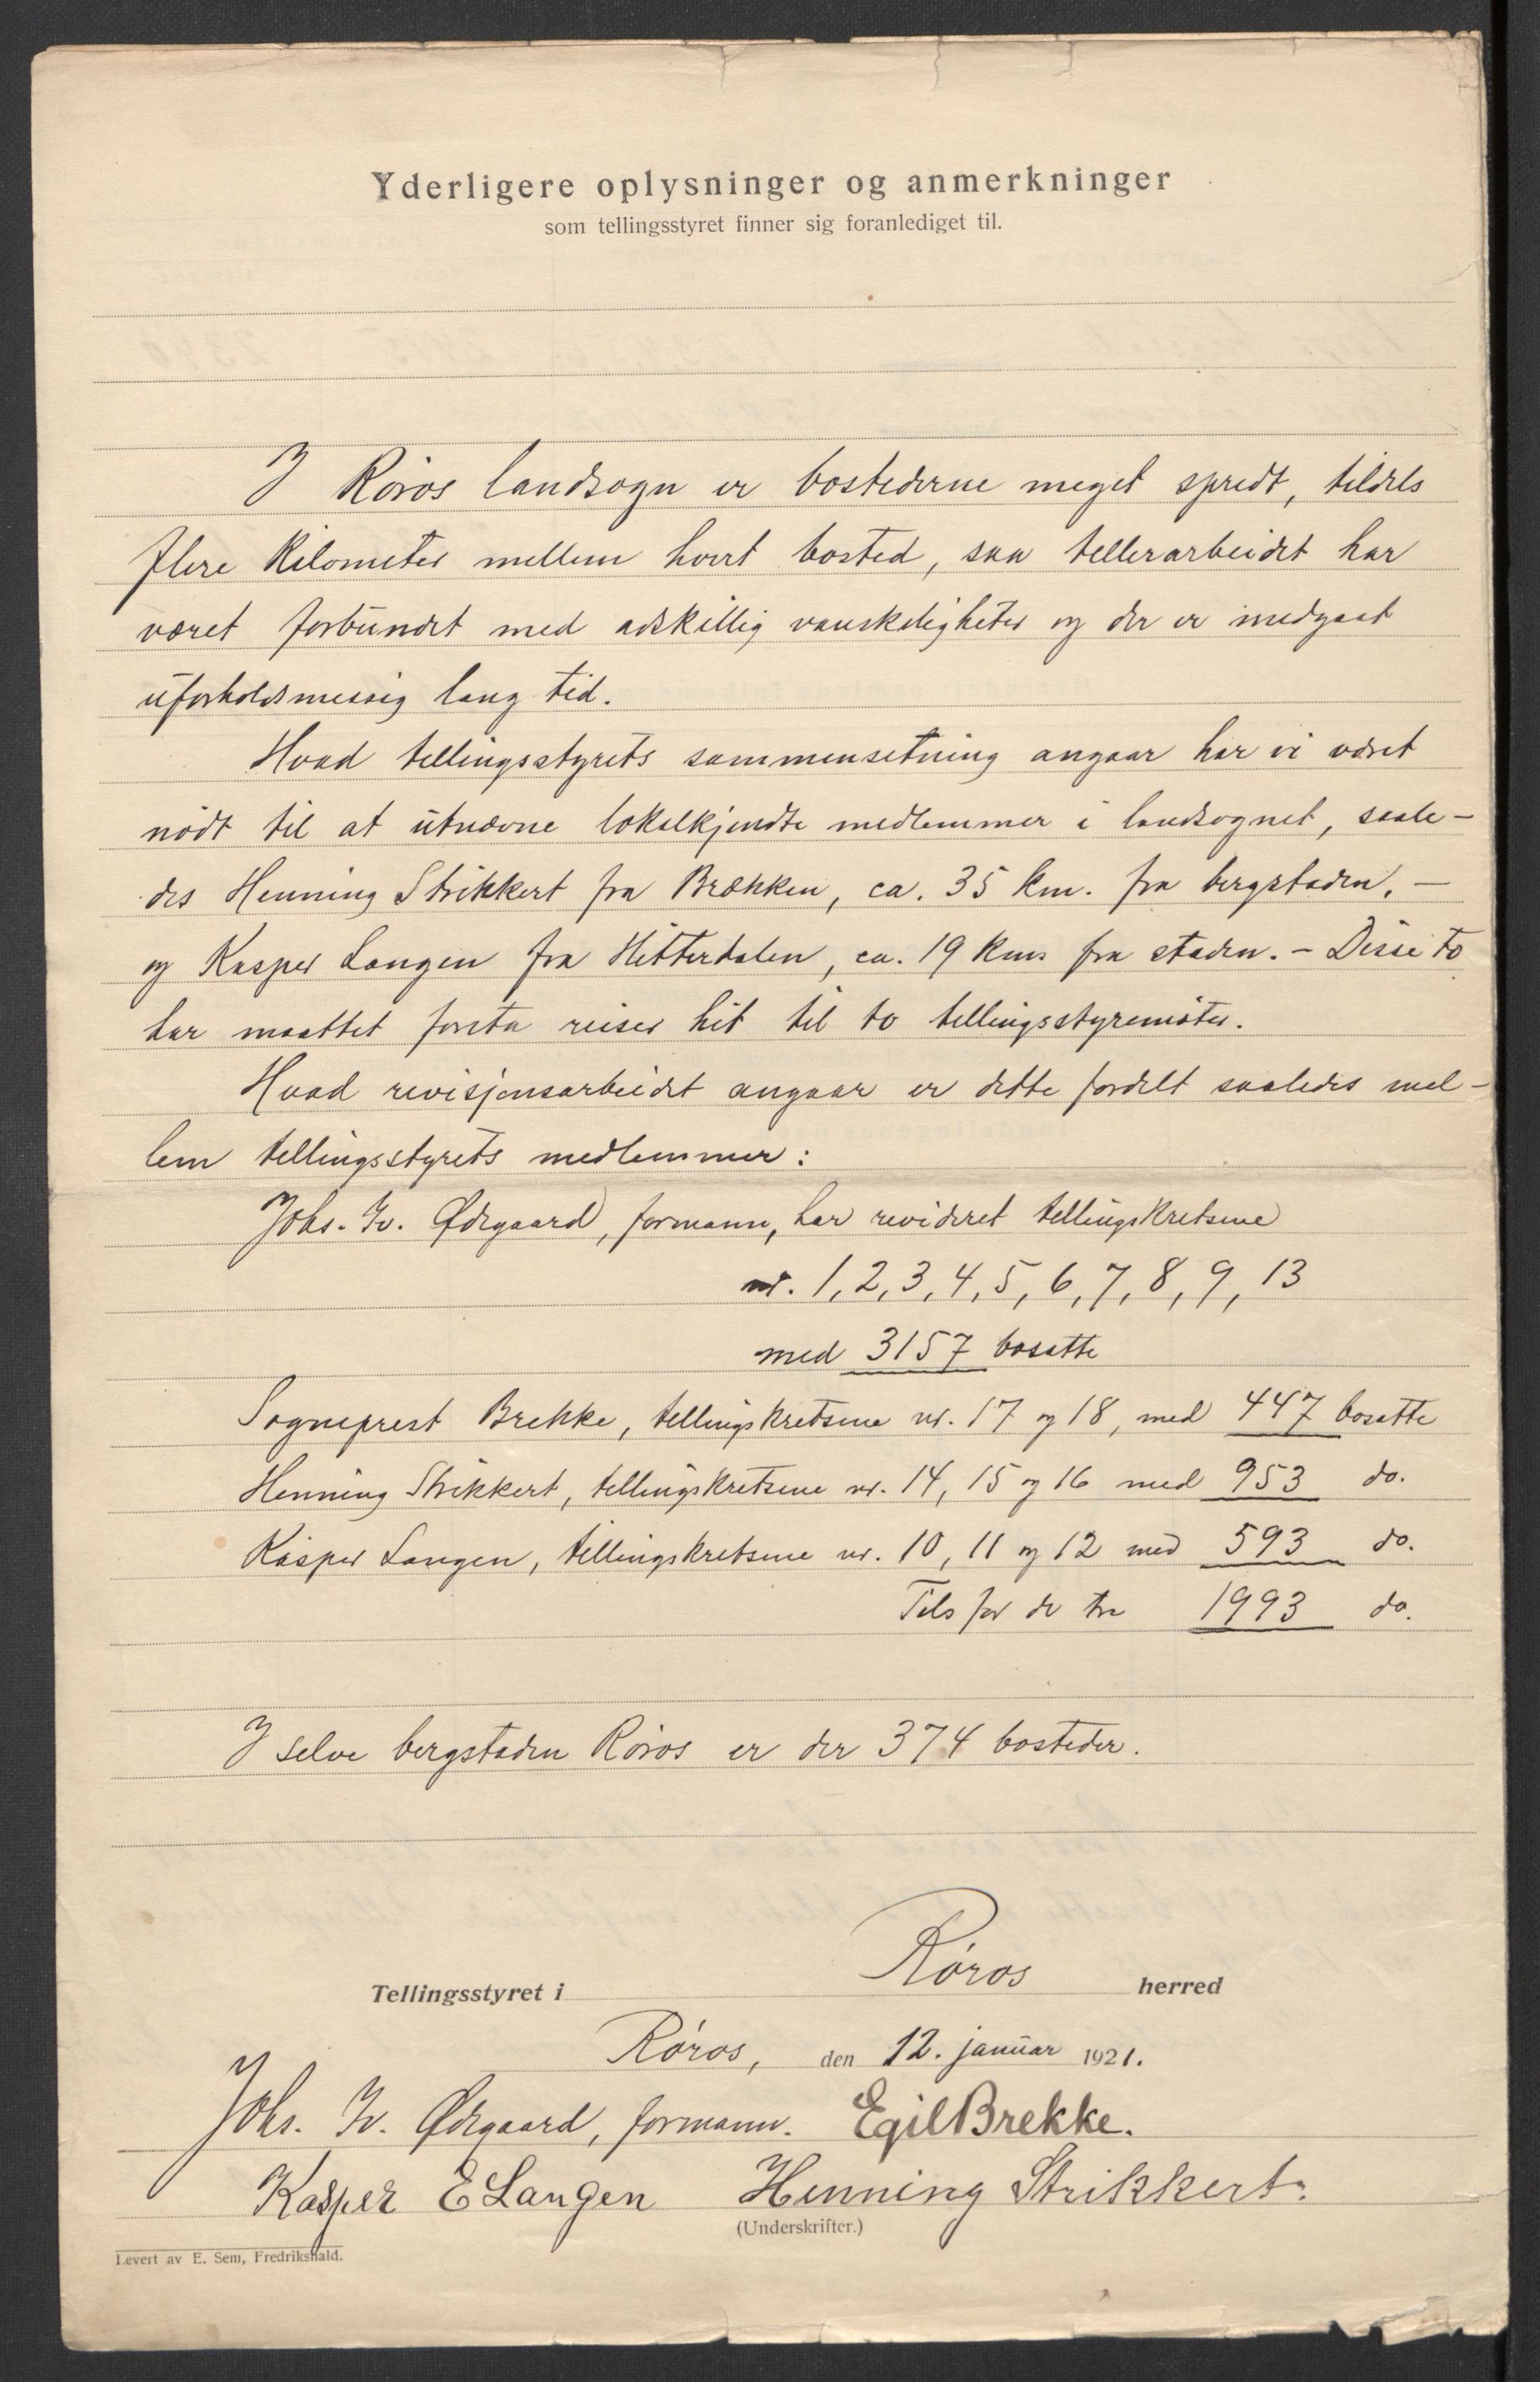 Yderligere oplysninger og anmerkninger
som tellingsstyret finner sig foranlediget til.
I Røros landsogn er bostederne meget spredt, tildels
flere kilometer mellem hvert bosted, saa tellerarbeidet har
været forbundet med adskillig vanskeligheter og der er medgaat
uforholdsmessig lang tid.
Hvad tellingsstyrets sammensetning angaar har vi været
nødt til at utnævne lokalkjendte medlemmer i landsognet, saale-
des Henning Strikkert fra Brækken, ca. 35 km. fra bergstaden, —
og Kasper Langen fra Hitterdalen, ca. 19 km fra staden. - Disse to
har maattet foreta reiser hit til to tellingsstyremøter.
Hvad revisjonsarbeidet angaar er dette fordelt saaledes mel-
lem tellingsstyrets medlemmer:
Johs. Iv. Ødegaard, formann, har revideret tellingskretsene
nr. 1, 2, 3, 4, 5, 6, 7, 8, 9, 13
med 3157 bosatte
Sogneprest Brekke, tellingskretsene nr. 17 og 18, med 447 bosatte
Henning Strikkert, tellingskretsene nr. 14, 15 og 16 med 953 do.
Kasper Langen, tellingskretsene nr. 10, 11 og 12 med 593 do.
Tils for de tre 1993 do.
I selve bergstaden Røros er der 374 bosteder.
Tellingsstyret i Røros herred
Røros, den 12. januar 1921.
Johs. Iv. Ødegaard, formann. Egil Brekke.
Kasper E Langen Henning Strikkert.
(Underskrifter.)
Levert av E. Sem, Fredrikshald.